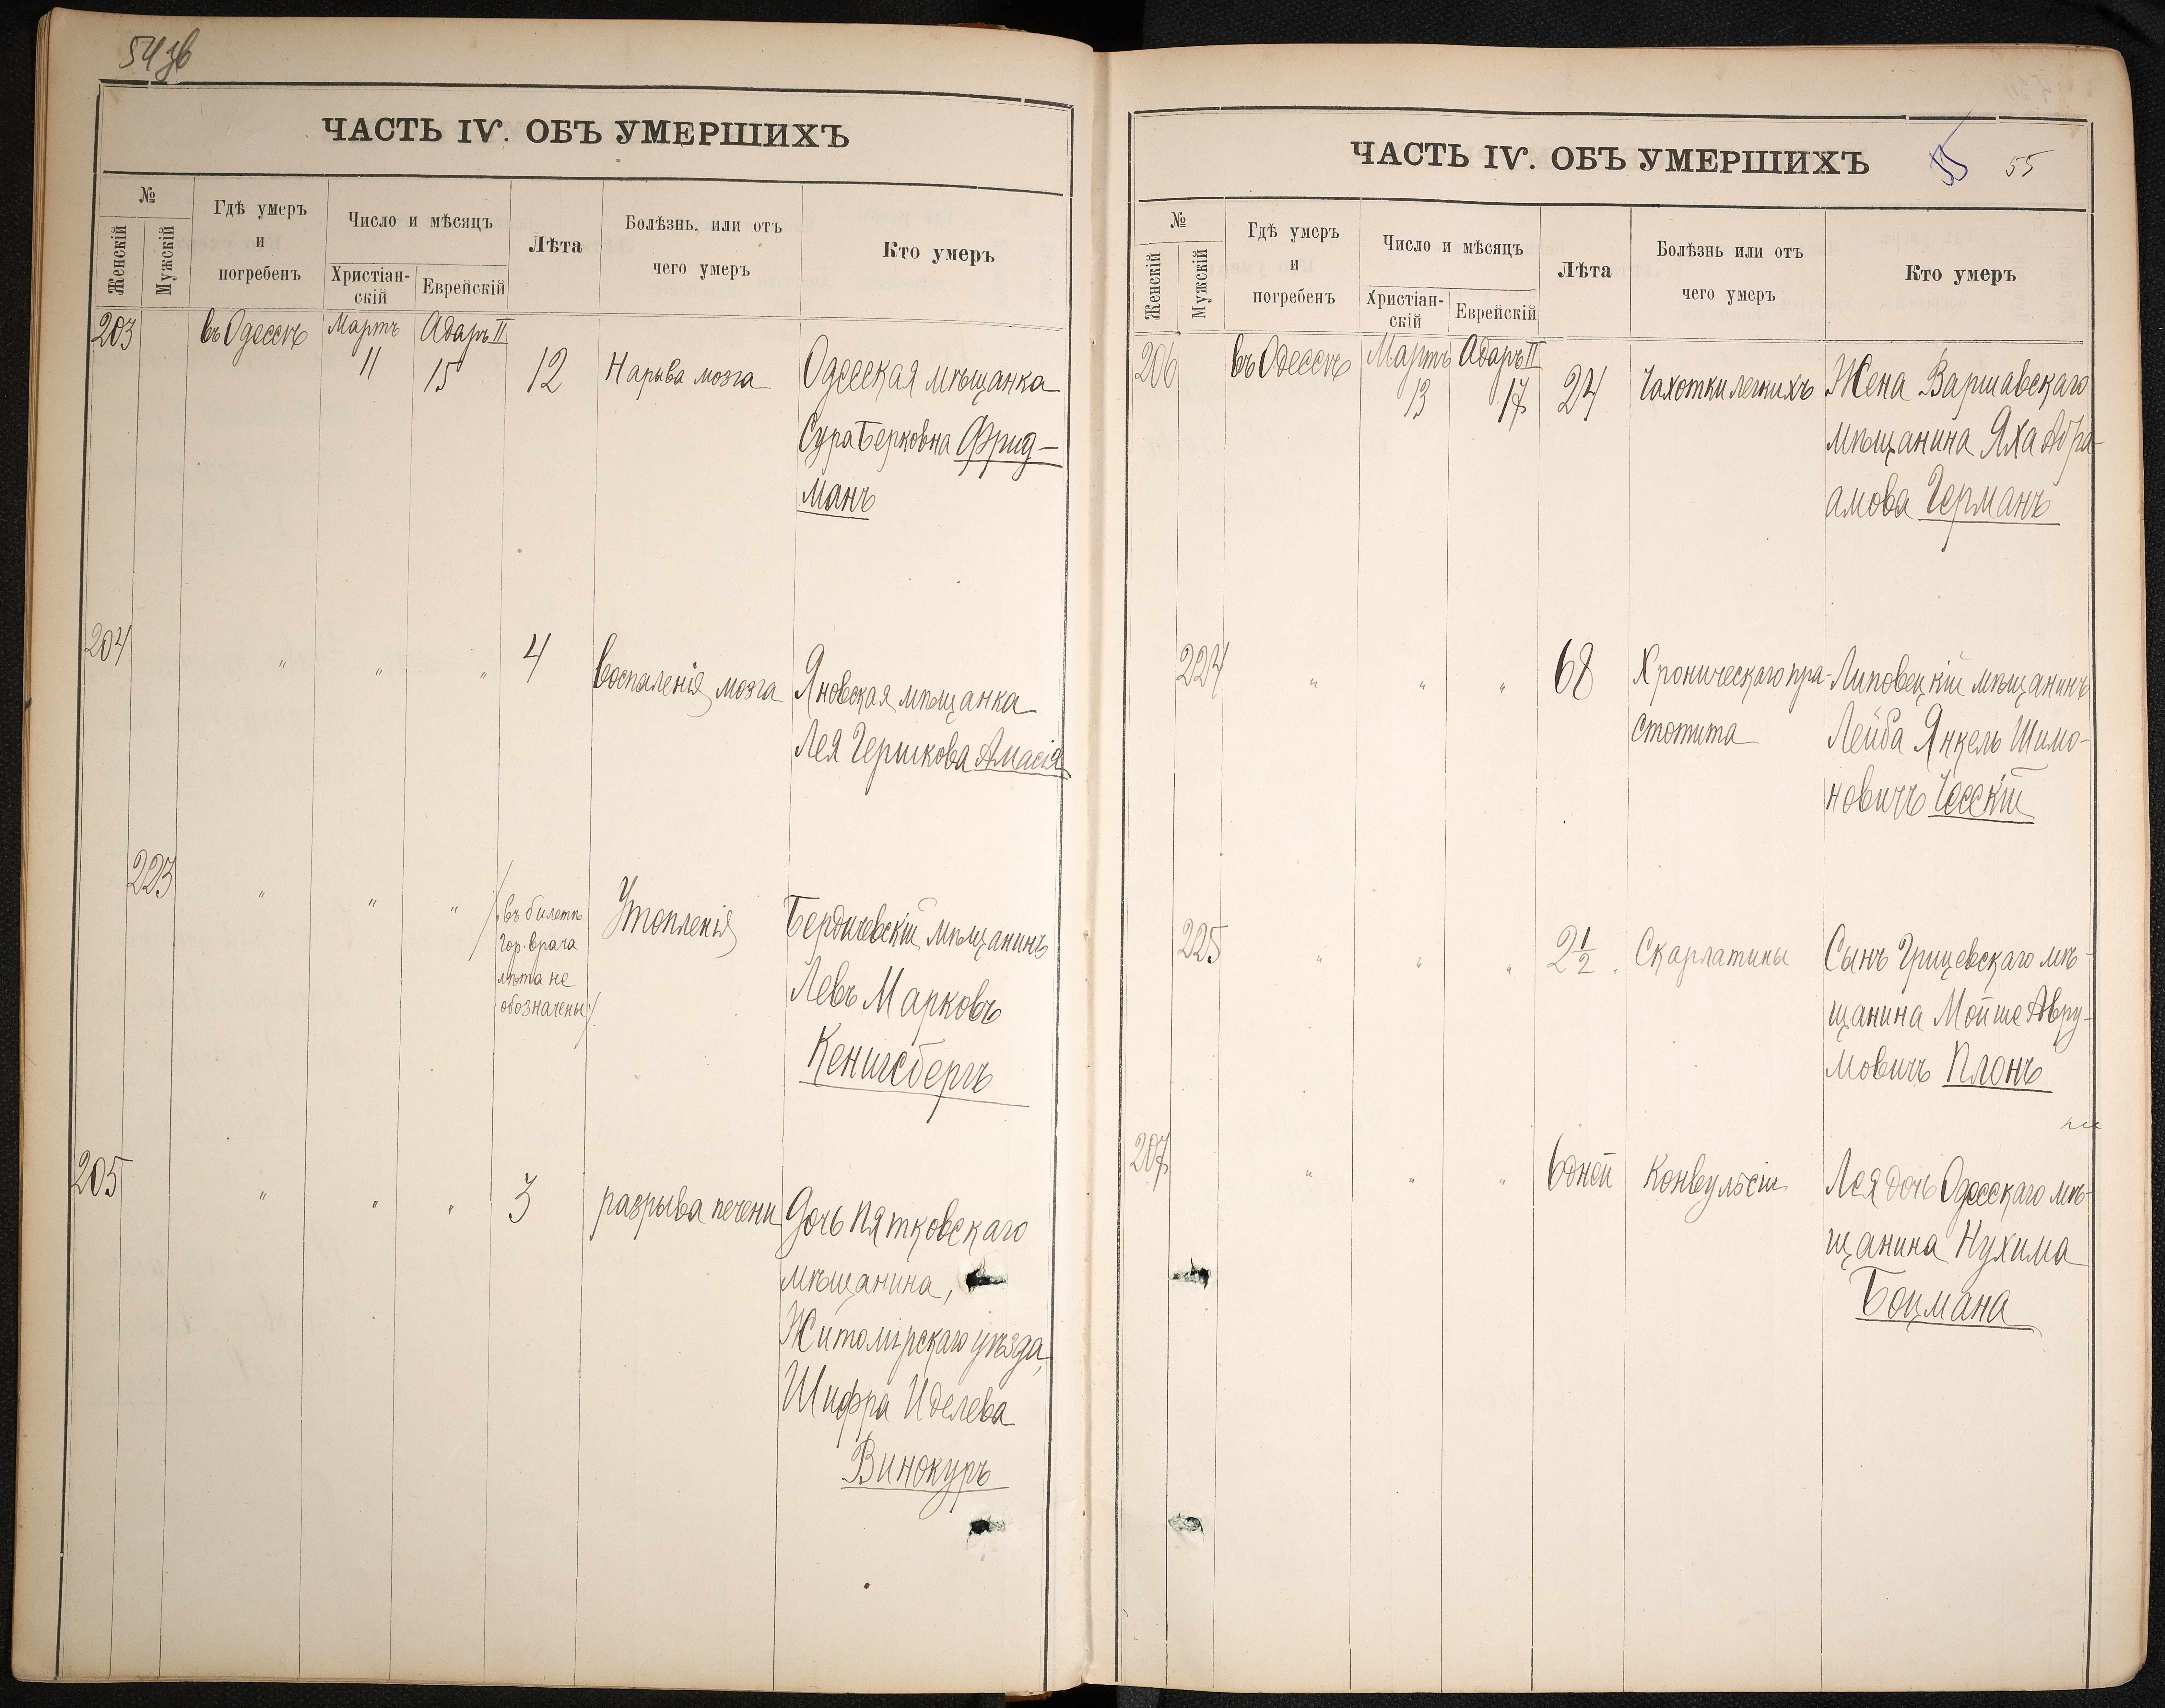 54 зв
ЧАСТЬ IV. ОБЪ УМЕРШИХЪ
№
Женскій
Мужскій
Гдѣ умеръ
и
погребенъ
Число и мѣсяцъ
Христіан-
скій
Еврейскій
Лѣта
Болѣзнь, или отъ
чего умеръ
Кто умеръ
203 въ Одессѣ Мартъ Адаръ II
11 15 12 Нарыва мозга Одесская мѣщанка
Сура Берковна Фрид-
манъ
204 " " " 4 Воспаленія мозга Яновская мѣщанка
Лея Гершкова Амасія
223 " " " /въ билетѣ Утопленія Бердичевскій мѣщанинъ
гор. врача Левъ Марковъ
лѣта не Кенигсбергъ
обозначены/
205 " " " 3 разрыва печени Дочь Пятковскаго
мѣщанина,
Житомірскаго уѣзда,
Шифра Иделева
Винокуръ
ЧАСТЬ IV. ОБЪ УМЕРШИХЪ 55 55
№
Женскій
Мужскій
Гдѣ умеръ
и
погребенъ
Число и мѣсяцъ
Христіан-
скій
Еврейскій
Лѣта
Болѣзнь или отъ
чего умеръ
Кто умеръ
206 въ Одессѣ Мартъ Адаръ II
13 17 24 Чахотки легкихъ Жена Варшавскаго
мѣщанина Яха Абра-
амова Германъ
224 " " " 68 Хроническаго пра- Липовецкій мѣщанинъ
стотита Лейба Янкель Шимо-
новичъ Чесскій
225 " " " 2½ Скарлатины Сынъ Грицевскаго мѣ-
щанина Мойше Авру-
мовичъ Плонъ
207 " " " 6 дней Конвульсіи Лея дочь Одесскаго мѣ-
щанина Нухима
Боцмана